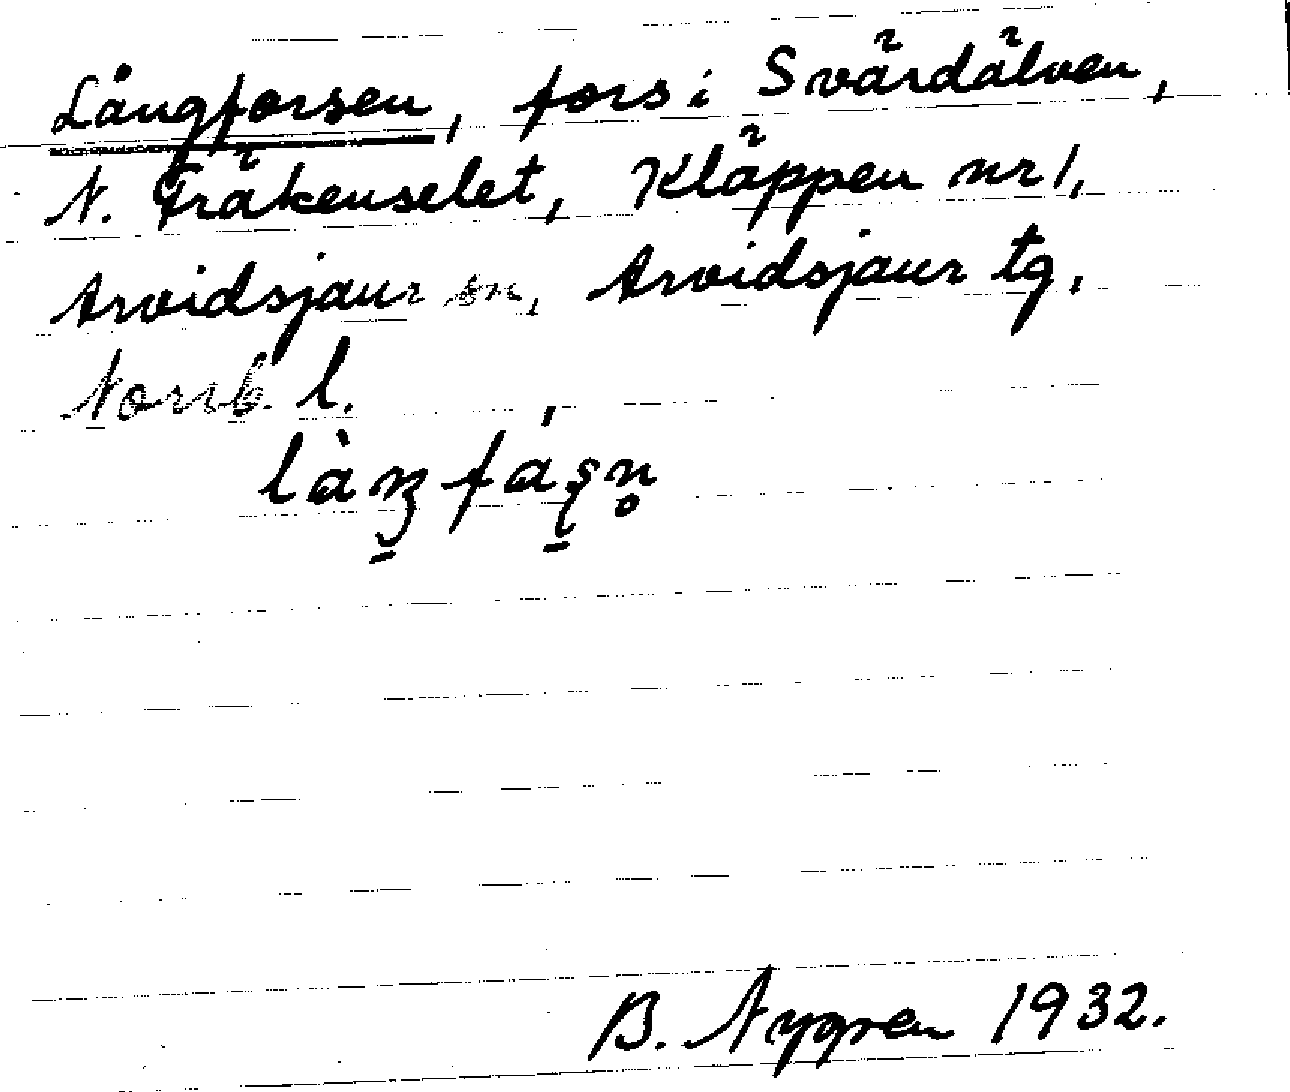 Långforsen, fors i Svärdälven,
N. Fräkenselet, Kläppen nr 1,
Arvidsjaur sn, Arvidsjaur tg,
Norrb. l.
B. Nygren 1932.